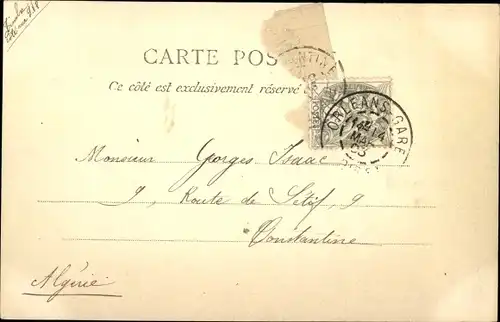 CARTE POS
Ce côté est exclusivement réservé
ANTINE
ORLEANS-GARE
MAI
03
Monsieur Georges Isaac
9, Route de Sétif, 9
Constantine
Algérie